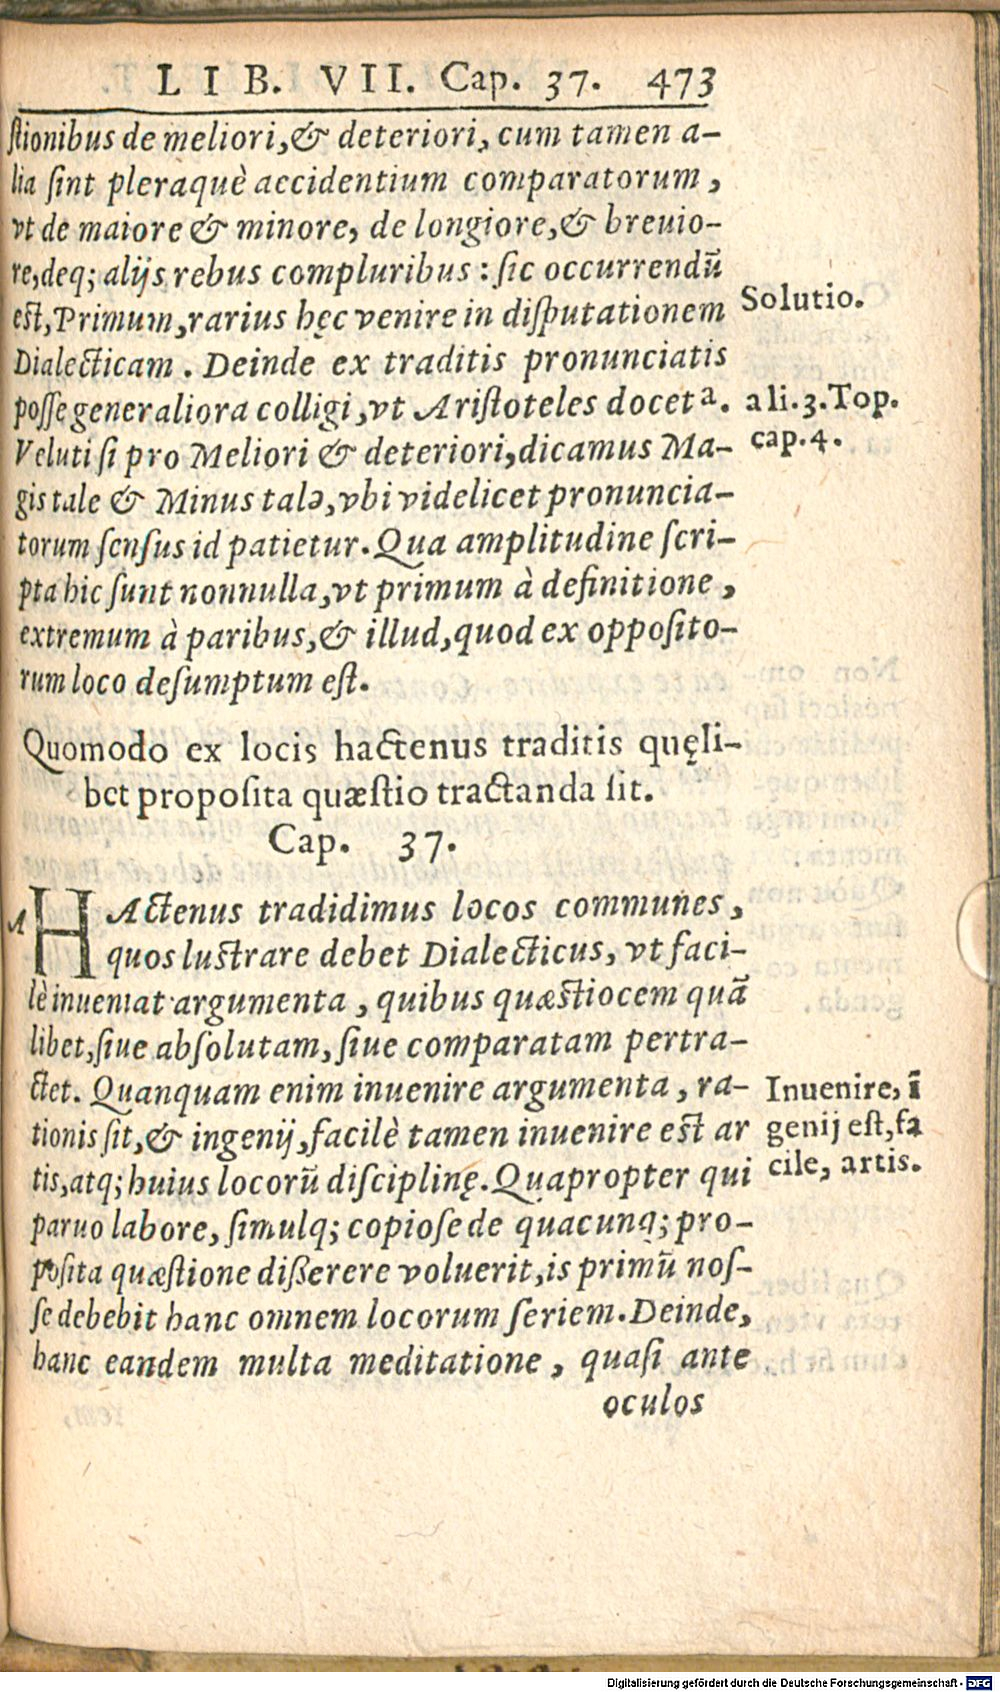 LIB. VII. Cap. 37. 473
ſtionibus de meliori, & deteriori, cum tamen a-
lia ſint pleraquè accidentium comparatorum,
vt de maiore & minore, de longiore, & breuio-
re, deq; alijs rebus compluribus: ſic occurrendũ
eſt, Primum, rarius hęc venire in diſputationem
Solutio.
Dialecticam. Deinde ex traditis pronunciatis
poſſe generaliora colligi, vt Ariſtoteles docet ᵃ.
a li. 3. Top.
cap. 4.
Veluti ſi pro Meliori & deteriori, dicamus Ma-
gis tale & Minus talə, vbi videlicet pronuncia-
torum ſenſus id patietur. Qua amplitudine ſcri-
pta hic ſunt nonnulla, vt primum à definitione,
extremum à paribus, & illud, quod ex oppoſito-
rum loco deſumptum eſt.
Quomodo ex locis hactenus traditis quęli-
bet propoſita quæſtio tractanda ſit.
Cap. 37.
A
HActenus tradidimus locos communes,
quos luſtrare debet Dialecticus, vt faci-
lè inueniat argumenta, quibus quæſtiocem quã
libet, ſiue abſolutam, ſiue comparatam pertra-
ctet. Quanquam enim inuenire argumenta, ra-
tionis ſit, & ingenij, facilè tamen inuenire eſt ar
tis, atq; huius locorũ diſciplinę. Quapropter qui
Inuenire, ī
genij eſt, fa
cile, artis.
paruo labore, ſimulq; copioſe de quacunq; pro-
poſita quæſtione diſſerere voluerit, is primũ noſ-
ſe debebit hanc omnem locorum ſeriem. Deinde,
hanc eandem multa meditatione, quaſi ante
oculos
Digitalisierung gefördert durch die Deutsche Forschungsgemeinschaft - DFG